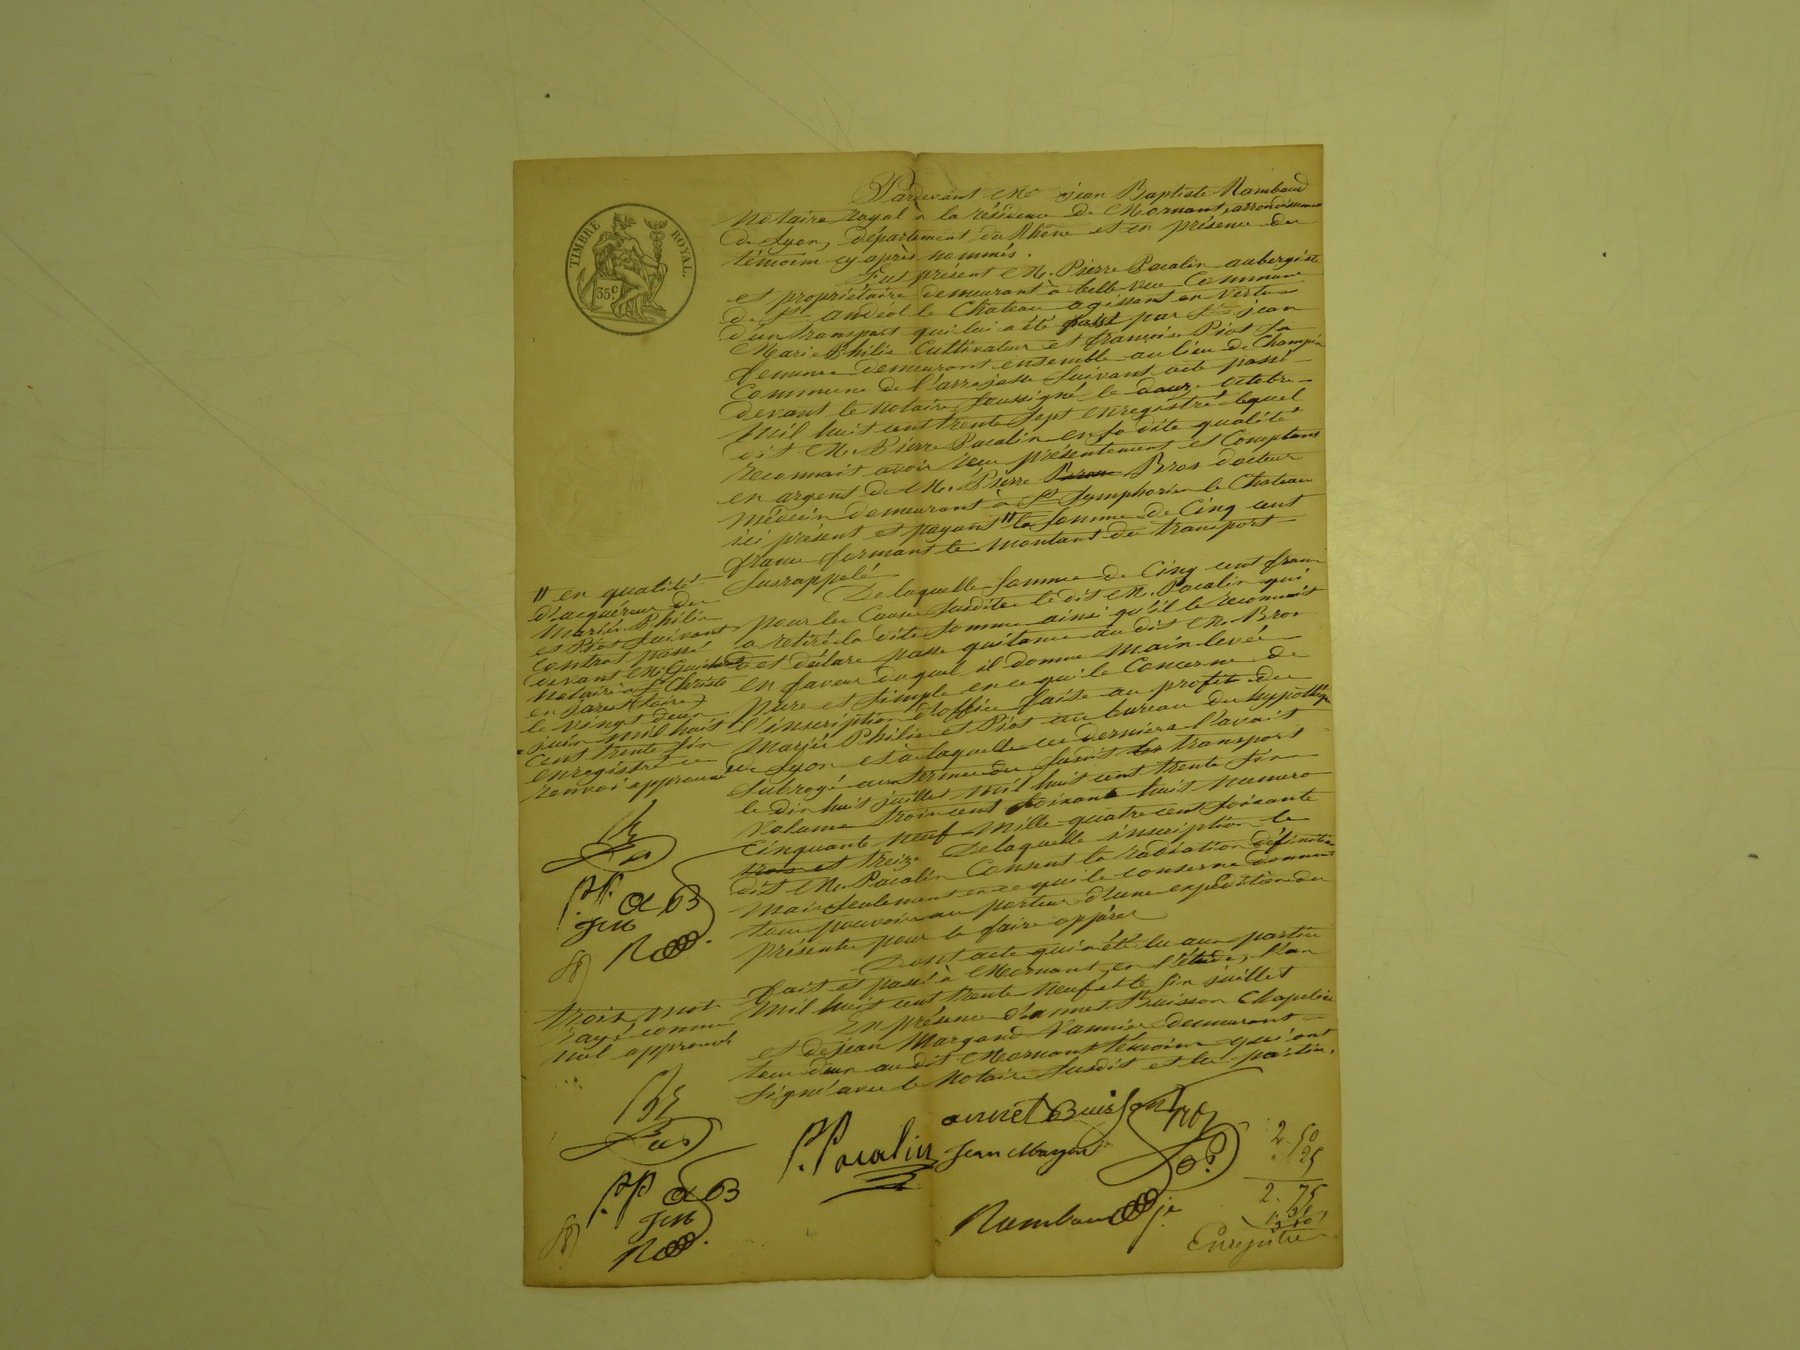 TIMBRE ROYAL.
35 c
Pardevant Me jean Baptiste Rambaud
Notaire royal à la résidence de Mornant, arrondissement
de Lyon, département du Rhône et en présence des
témoins cy après nommés.
Fut présent M. Pierre Pacalin aubergiste
et propriétaire demeurant à belle vue Commune
de St andéol le Chateau agissant en vertu
d'un transport qui lui a été passé par Srs jean
Marie Philis Cultivateur et françoise Piot sa
femme demeurant ensemble au lieu de Champin
Commune de l'arrajasse Suivant acte passé
devant le notaire soussigné le douze octobre
mil huit cent trente Sept enregistré lequel
dit M. Pierre Pacalin en sa dite qualité
reconnait avoir reçu présentement et Comptant
en argent de M. Pierre Bros docteur
médecin demeurant à St Symphorien le Chateau
ici présent et payant " la Somme de Cinq cent
franc formant le montant du transport
Susrappelé
De laquelle Somme de Cinq cent franc
pour les Causes Susdites le dit M. Pacalin qui
a retiré la dite Somme ainsi qu'il le reconnait
et déclare passe quitance au dit M. Bros
en faveur duquel il donne main levée
pure et Simple en ce qui le Concerne de
l'inscription d'office faite au profit des
mariés Philis et Piot au bureau des hypothèques
de Lyon et à laquelle ces derniers l'avait
Subrogé aux termes du susdit transport
le dix huit juillet mil huit cent trente six
volume trois cent soixante huit numero
Cinquante neuf mille quatre cent soixante
et treize De laquelle inscription le
dit M. Pacalin Consent la radiation définitive
mais Seulement en ce qui le conserne donnant
tous pouvoirs au porteur d'une expédition des
présentes pour le faire opérer
Dont acte qui a été lu aux parties
fait et passé à Mornant, en l'étude, l'an
mil huit cent trente neuf et le six juillet
En présence d'annet Buisson Chapelier
et de jean Margand Vannier demeurant
tous deux au dit Mornant témoins qui ont
signé avec le Notaire Susdit et les parties.
" en qualité
d'acquéreur des
mariés Philis
et Piot Suivant
Contrat passé
devant Me
notaire à St Christo
en jarest (Loire)
le vingt deux
juin mil huit
cent trente six
enregistré
renvoi approuvé
P.P. a B
JM
R
trois mots
rayé comme
nul approuvé
P.P. a B
JM
R
P. Pacalin
annet Buisson
Jean Margand
Bros
Rambaud
2. 50
. 25
2. 75
Enregistré